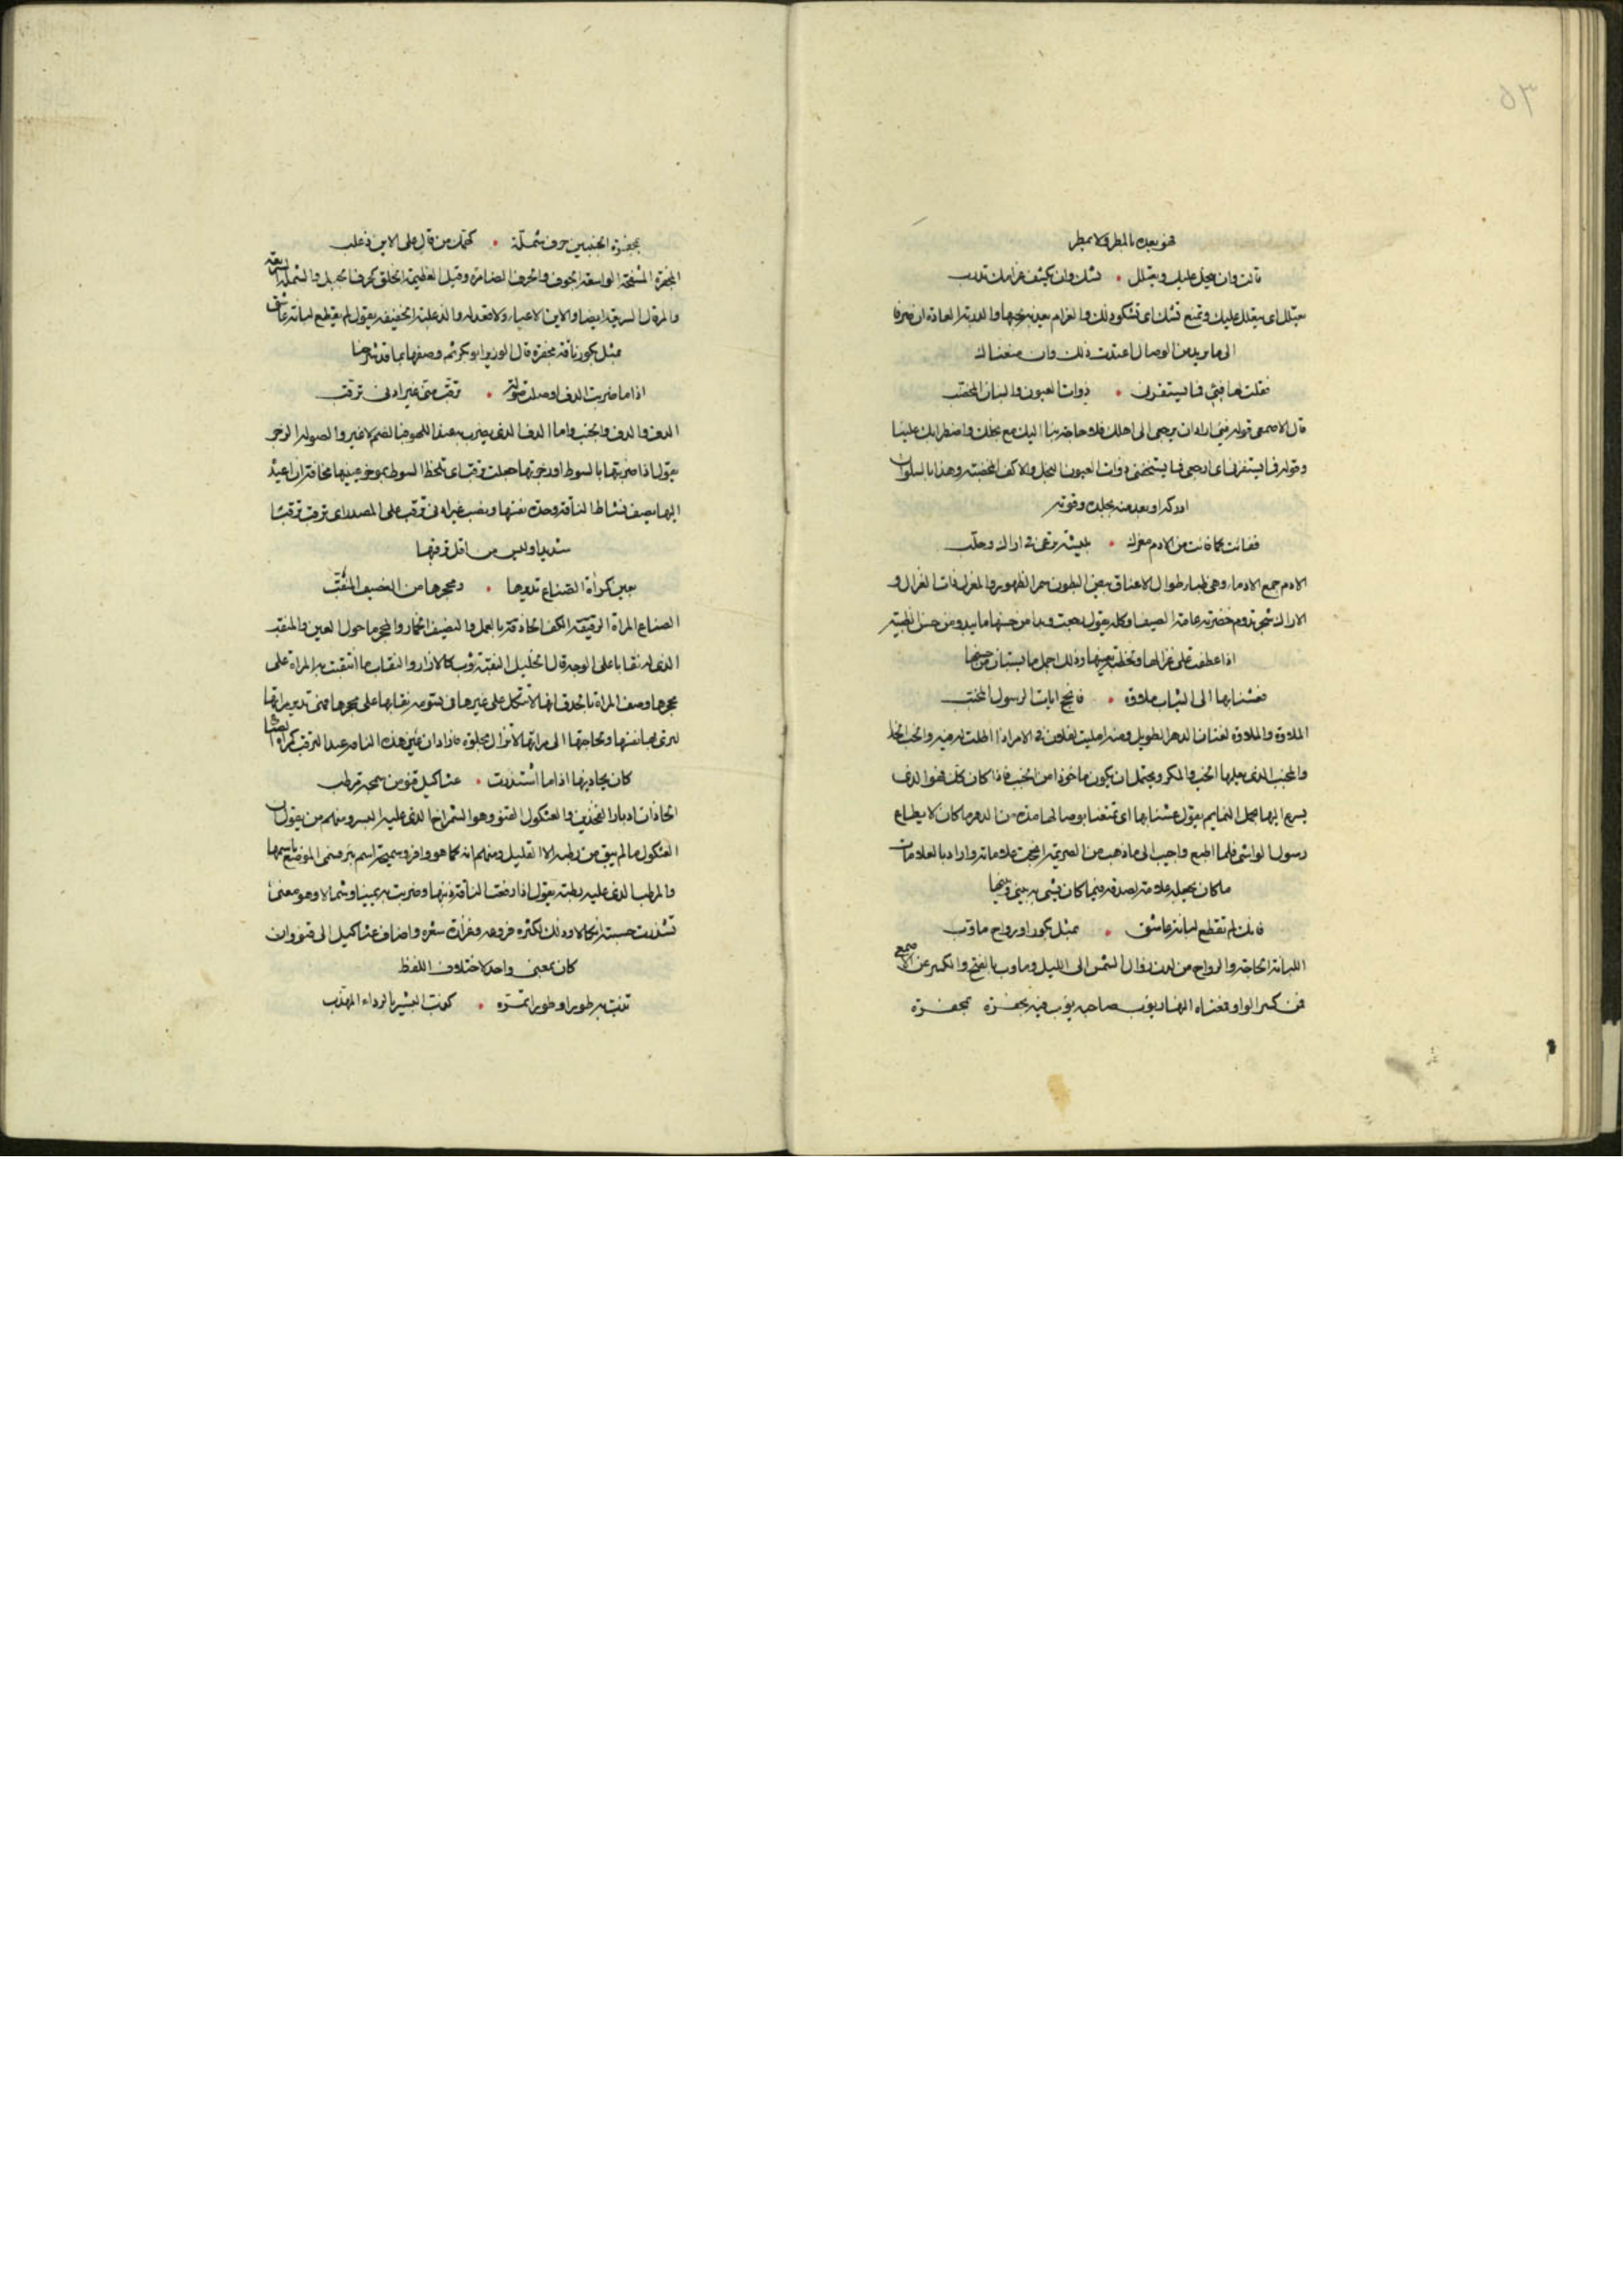 ٥٣
قالت وان يبخل عليك ويعتلل • تشك وان يكشف غرامك تدرب
يعتلل اى يتعلل عليك وتمنع تشك اى تشكو ذلك والغرام والدربة العادة ان
الى ما تريد من الوصال اعتدت ذلك وان منعناك
فقلت لها فيئي فما يستفزنى • ذوات العيون والبنان المخضب
قال الاصمعى قوله فيئي اراد ان يرجعى الى اهلك فلا حاجة بنا اليك مع بخلك واضطرابك علينا
وقوله فما يستفزنى اى ارجعى فما يستخفنى ذوات العيون النجل والاكف المخضبة وهذا بالسلوان
ادركه او بعد من بجلده وقوته
ففائت كما فائت من الادم مغزل • ببيشة ترعى فى اراك وحلب
الادم جمع الادماء وهى ظباء طوال الاعناق بيض البطون سمر الظهور والمغزل ذات الغزال و
الاراك شجر تدوم خضرته عامة الصيف وكله يقول رجعت وبدا من حسنها ما يبدو من حسن الظبية
اذا عطفت على غزالها وتخلفت وذلك اجمل ما يستبان من حسنها
فعشنا بها الى الشباب ملاوة • فانجح ايات الرسول المخبب
الملاوة والملاوة لغتان الدهر الطويل ومنه امليت لفلان فى الامر اذا اطلت له فيه والخب الخداع
والمخبب الذى يعلمها الخب والمكر ويحتمل ان يكون ماخوذا من الخبب فاذا كان كذلك فهو الذى
يسرع اليها بحمل النمايم يقول عشنا بها اى تمتعنا بوصالها مدة من الدهر ما كان لا يطاع
رسول الواشى فلما اطيع واجيب الى ما ذهب من الصريمة انجحت علاماته واراد بالعلامات
ما كان يجعله علامة لصدقه فيما كان يشى به بينى وبينها
فانك لم تقطع لبانة عاشق • بمثل بكور او رواح ماوب
اللبانة الحاجة والرواح من لدن زوال الشمس الى الليل وماوب بالفتح والكسر عن الاصمعى
فمن كسر الواو فمعناه النهار يؤب صاحبه يؤب فيه بمجفرة
بمجفرة الجنبين حرف شملة • كهمك مرقال على الاين ذعلب
المجفرة المنتفخة الواسعة الجوف والحرف الضامرة وقيل العظيمة الخلق كحرف الجبل والشملة السريعة
والمرقال السريعة ايضا والاين الاعياء ولا فعل له والذعلبة الخفيفة يقول لم يقطع لبانة عاشق
بمثل بكور ناقة مجفرة قال الوزير ابو بكر ثم وصفها بما قد شرحنا
اذا ما ضربت الدف او صلت صولة • ترقب منى غير ادنى ترقب
الدف والدف والجنب واما الدف الذى يضرب به فالضم لا غير والصولة الزجر
يقول اذا ضربتها بالسوط او زجرتها جعلت ترقب اى تلحظ السوط بمؤخر عينها مخافة ان اعيده
اليها يصف نشاط الناقة وحدة نفسها ونصب غير ادنى ترقب على المصدر اى ترقبت ترقبا
شديدا وليس من اقل ترقبها
بعين كمرآة الصناع تديرها • ومحجرها من النصيف المنقب
الصناع المراة الرفيقة الكف الحاذقة بالعمل والنصيف الخمار والمحجر ما حول العين والمنقب
الذى له نقاب على الوجه قال الخليل النقبة ثوب كالازار والنقاب ما انتقبت به المراة على
محجرها وصف المراة بالحذق لانها لا تتكل على غيرها فى تسوية نقابها على محجرها فهى تدير مراتها
لترى بها نفسها ولحاجتها الى مراتها لا تزال مجلوة فاراد ان عينى هذه الناقة عند الترقب كمراة بصفائها
كان بحاذيها اذا ما تشذرت • عثاكيل قنو من سميحة مرطب
الحاذان ادبار الفخذين والعثكول القنو وهو الشمراخ الذى عليه البسر ومنهم من يقول
العثكول ما لم يبق من رطبه الا القليل ومنهم انه كما هو وافر وسميحة اسم بئر فسمى الموضع باسمها
والمرطب الذى عليه رطبه يقول اذا رفعت الناقة ذنبها وضربت به يمينا وشمالا وهو معنى
تشذرت حسبته عثكالا وذلك لكثرة فروعه وغزارة شعره واضاف عثاكيل الى قنو وان
كان بمعنى واحد لاختلاف اللفظ
تذب به طورا وطورا تمره • كذب البشير بالرداء المهذب